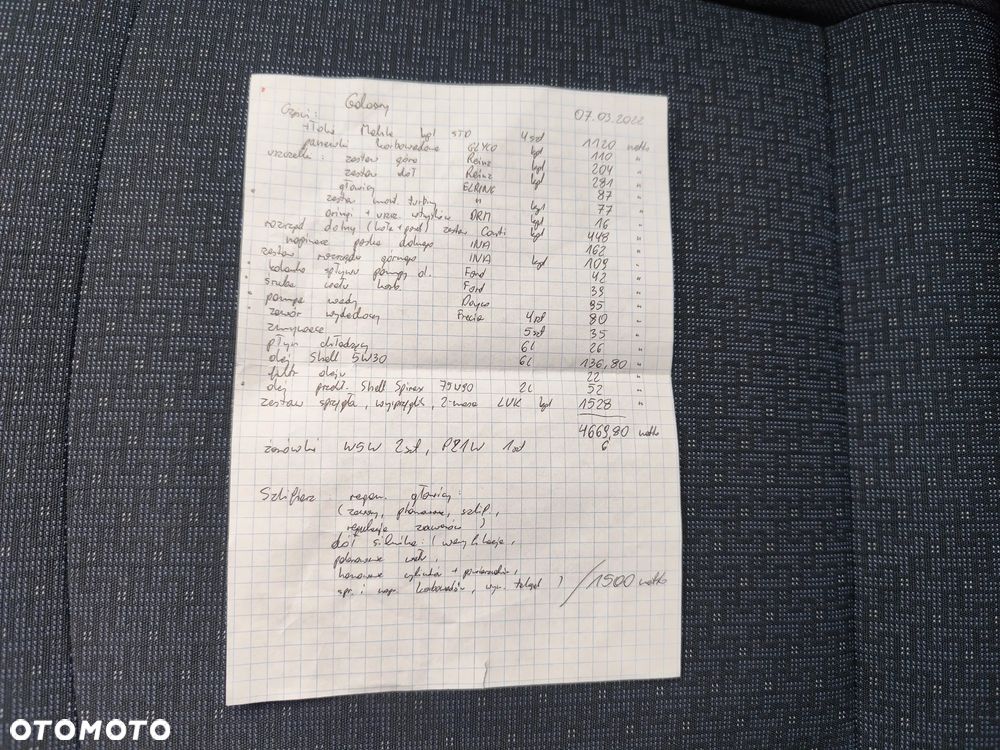 Galaxy 07.03.2022
Części:
tłoki Mahle kpl STD 4 szt 1120 netto
panewki korbowodowe GLYCO kpl 110 "
uszczelki: zestaw góra Reinz kpl 204 "
zestaw dół Reinz kpl 281 "
głowicy ELRING 87 "
zestaw mont. turbiny " kpl 77 "
oringi + uszcz. wtrysków DRM kpl 16 "
rozrząd dolny (koła + pasek) zestaw Conti kpl 448 "
napinacz paska dolnego INA 162 "
zestaw rozrządu górnego INA kpl 109 "
kolanko spływu pompy ol. Ford 42 "
śruba wału korb. Ford 39 "
pompa wody Dayco 95 "
zawór wydechowy Freccia 4 szt 80 "
zmywacze 5 szt 35 "
płyn chłodzący 6l 26 "
olej Shell 5W30 6l 136,80 "
filtr oleju 22 "
olej przekł. Shell Spirax 75W90 2l 52 "
zestaw sprzęgła, wysprzęglik, 2-masa LUK kpl 1528 "
4669,80 netto
żarówki W5W 2szt, P21W 1szt 6
Szlifierz: regen. głowicy:
(zawory, planowanie, szlif,
regulacja zaworów)
dół silnika: (weryfikacja,
polerowanie wału,
honowanie cylindrów +
spr. i nap. korbowodów, ) /1500 netto
OTOMOTO